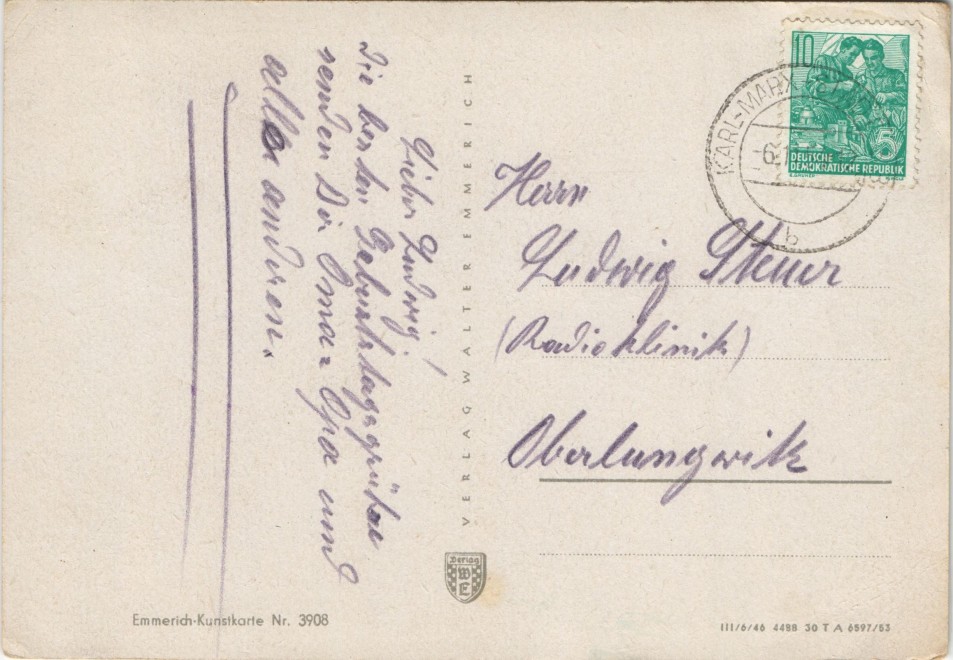 Lieber Ludwig!
Die besten Geburtstagsgrüße
senden Dir Oma = Opa und
alle anderen.
VERLAG WALTER EMMERICH
Herrn
Ludwig Steuer
(Radioklinik)
Oberlungwitz
10
5
DEUTSCHE
DEMOKRATISCHE REPUBLIK
KARL-MARX-
-6.1
b
Verlag
WE
Emmerich-Kunstkarte Nr. 3908
III/6/46 4488 30 T A 6597/53